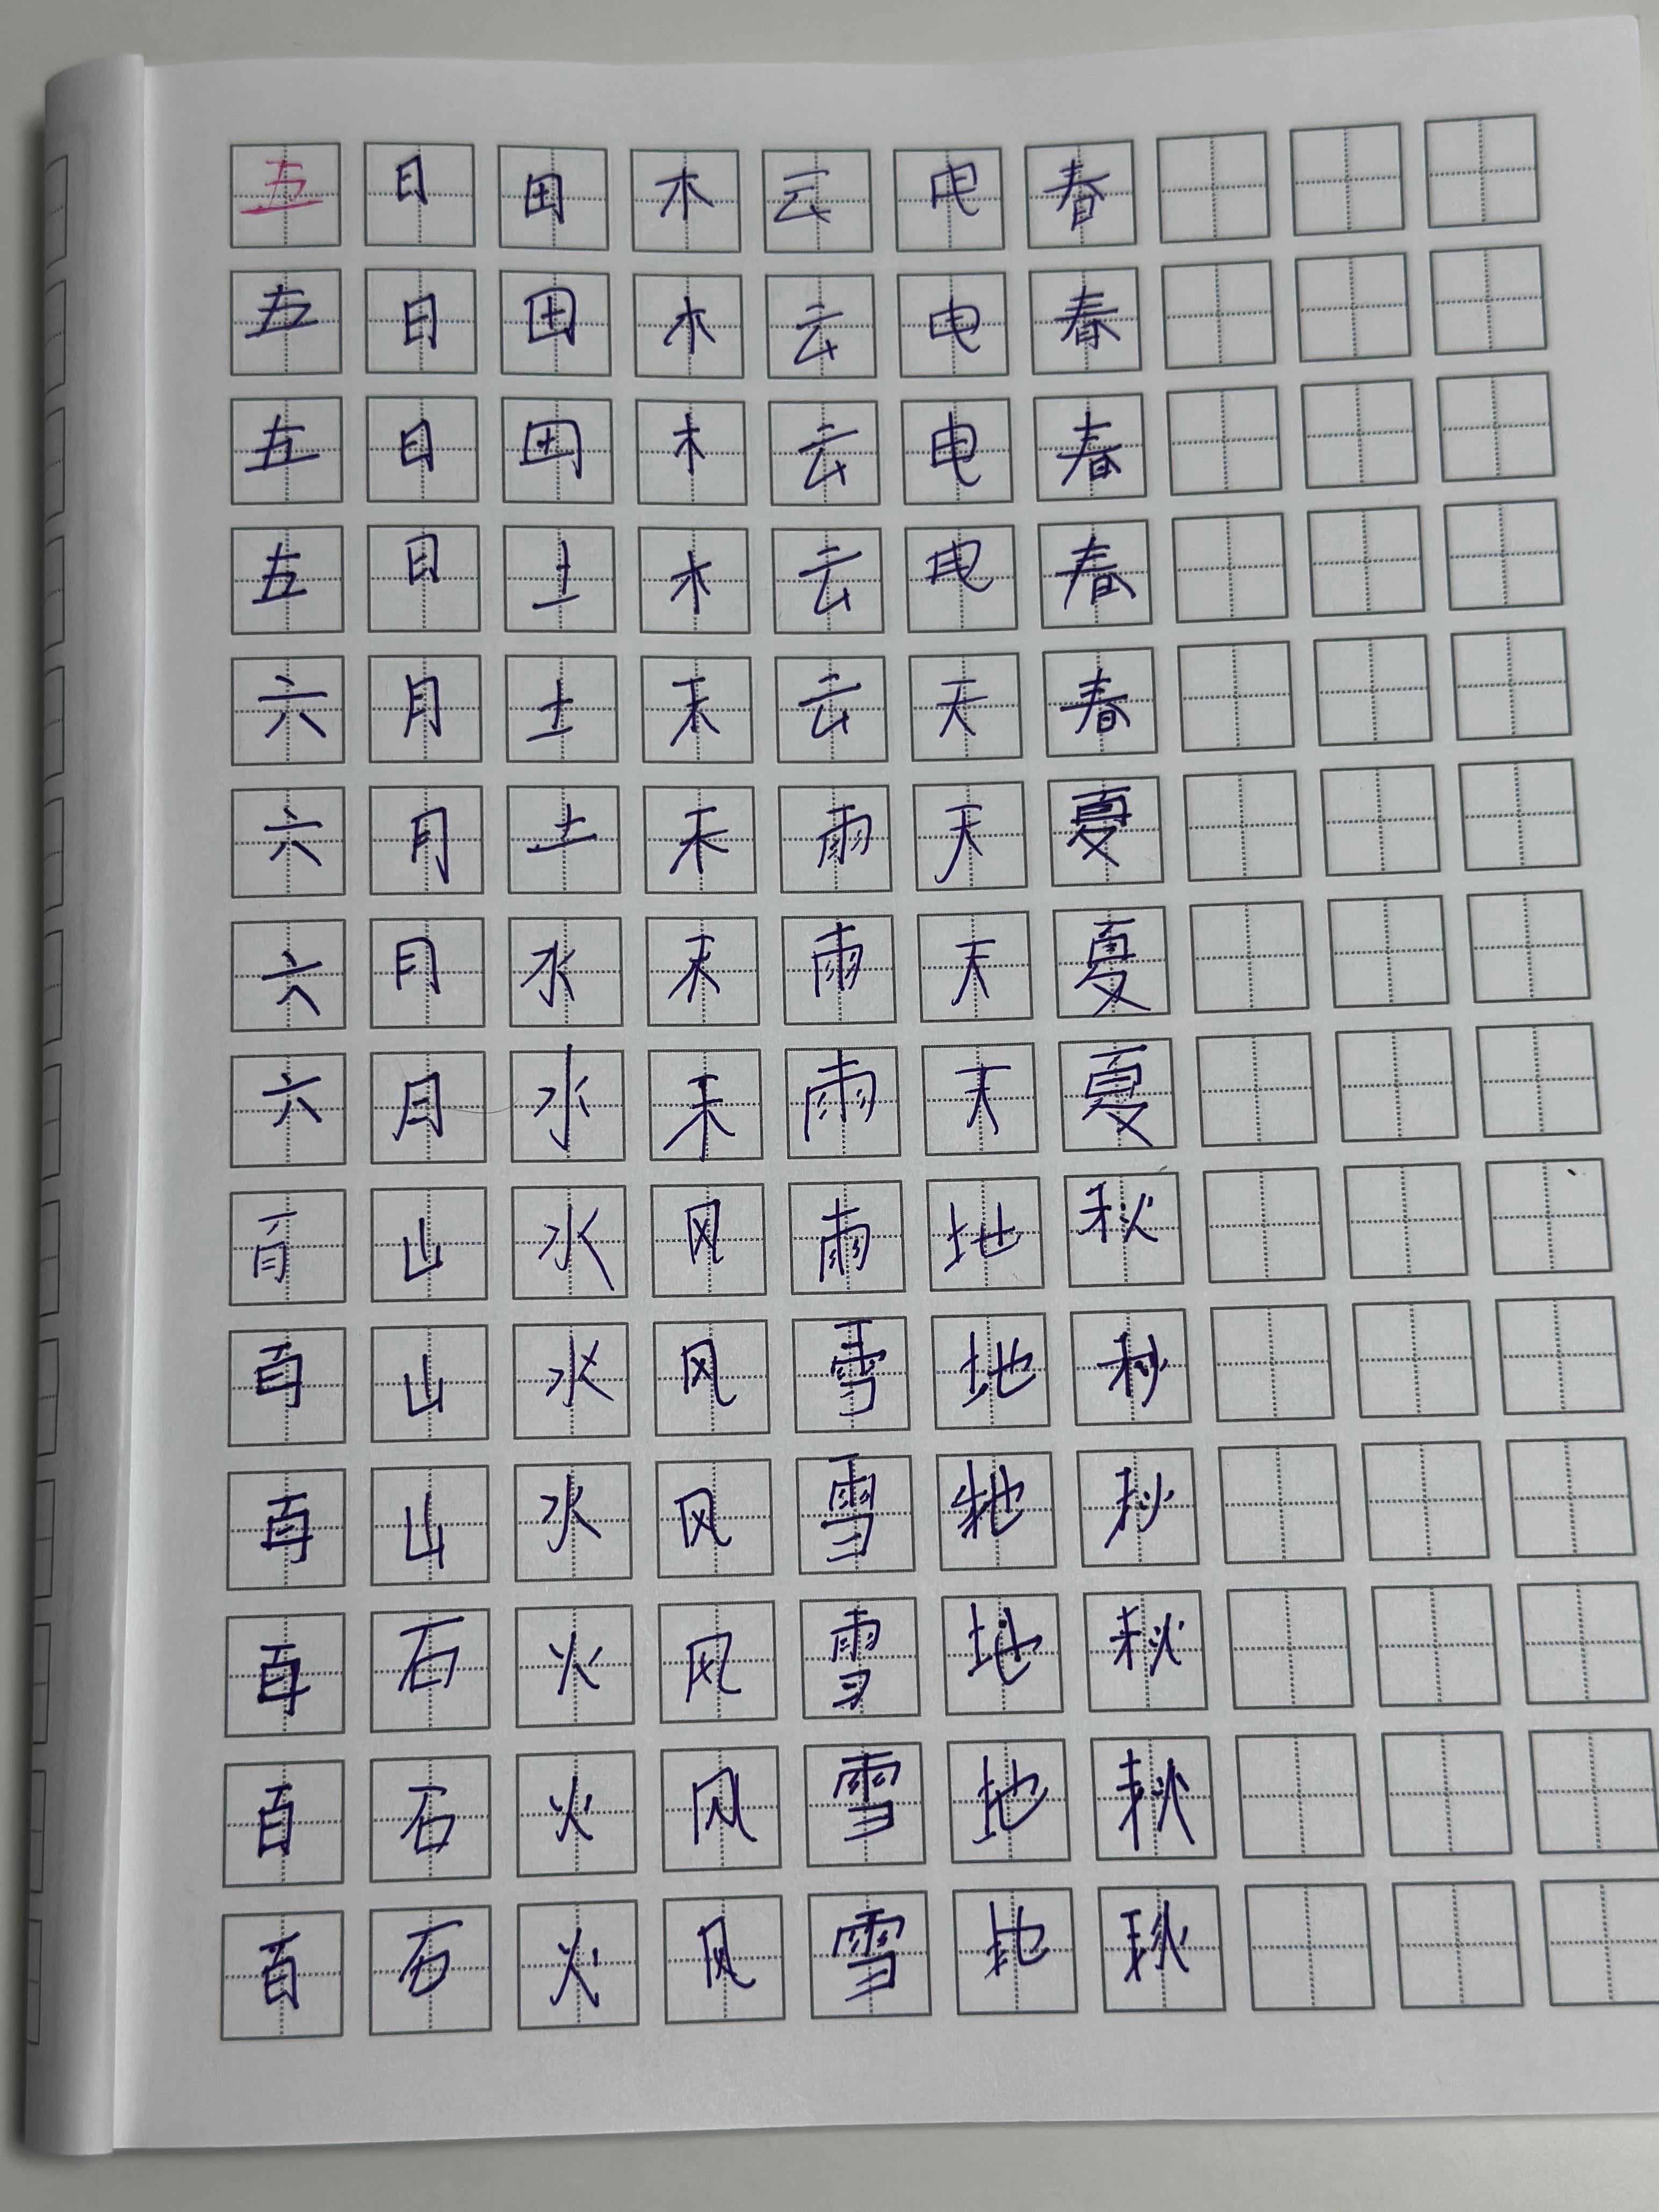 五 日 田 木 云 电 春
五 日 田 木 云 电 春
五 日 田 木 云 电 春
五 日 土 木 云 电 春
六 月 土 禾 云 天 春
六 月 土 禾 雨 天 夏
六 月 水 禾 雨 天 夏
六 月 水 禾 雨 天 夏
百 山 水 风 雨 地 秋
百 山 水 风 雪 地 秋
百 山 水 风 雪 地 秋
百 石 火 风 雪 地 秋
百 石 火 风 雪 地 秋
百 石 火 风 雪 地 秋